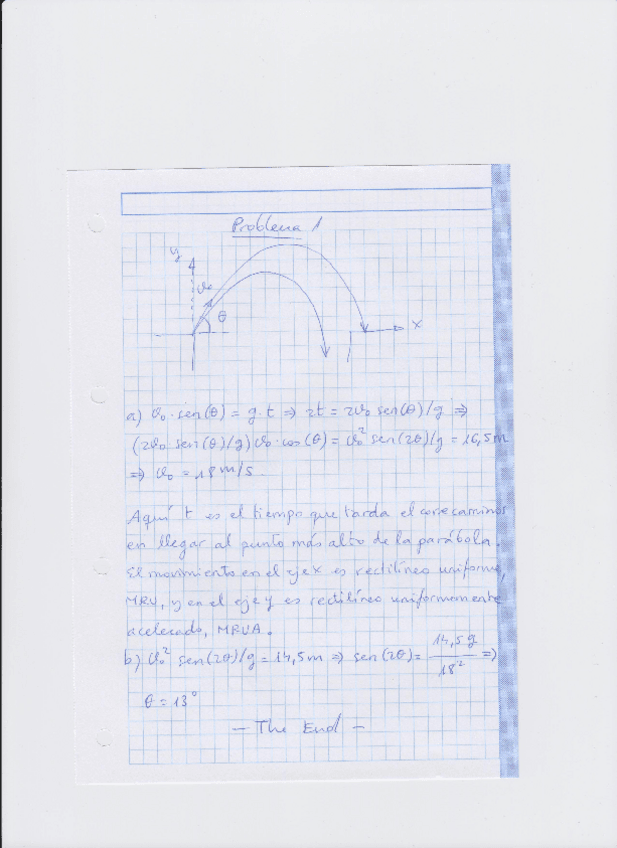 Problema 1
y
v₀
θ
x
a) v₀·sen(θ) = g·t ⇒ 2t = 2v₀ sen(θ)/g ⇒
(2v₀ sen(θ)/g) v₀·cos(θ) = v₀² sen(2θ)/g = 16,5 m
⇒ v₀ = 18 m/s
Aquí t es el tiempo que tarda el correcaminos
en llegar al punto más alto de la parábola.
El movimiento en el eje x es rectilíneo uniforme,
MRU, y en el eje y es rectilíneo uniformemente
acelerado, MRUA.
b) v₀² sen(2θ)/g = 14,5 m ⇒ sen(2θ) = 14,5 g / 18² ⇒
θ = 13°
— The End —